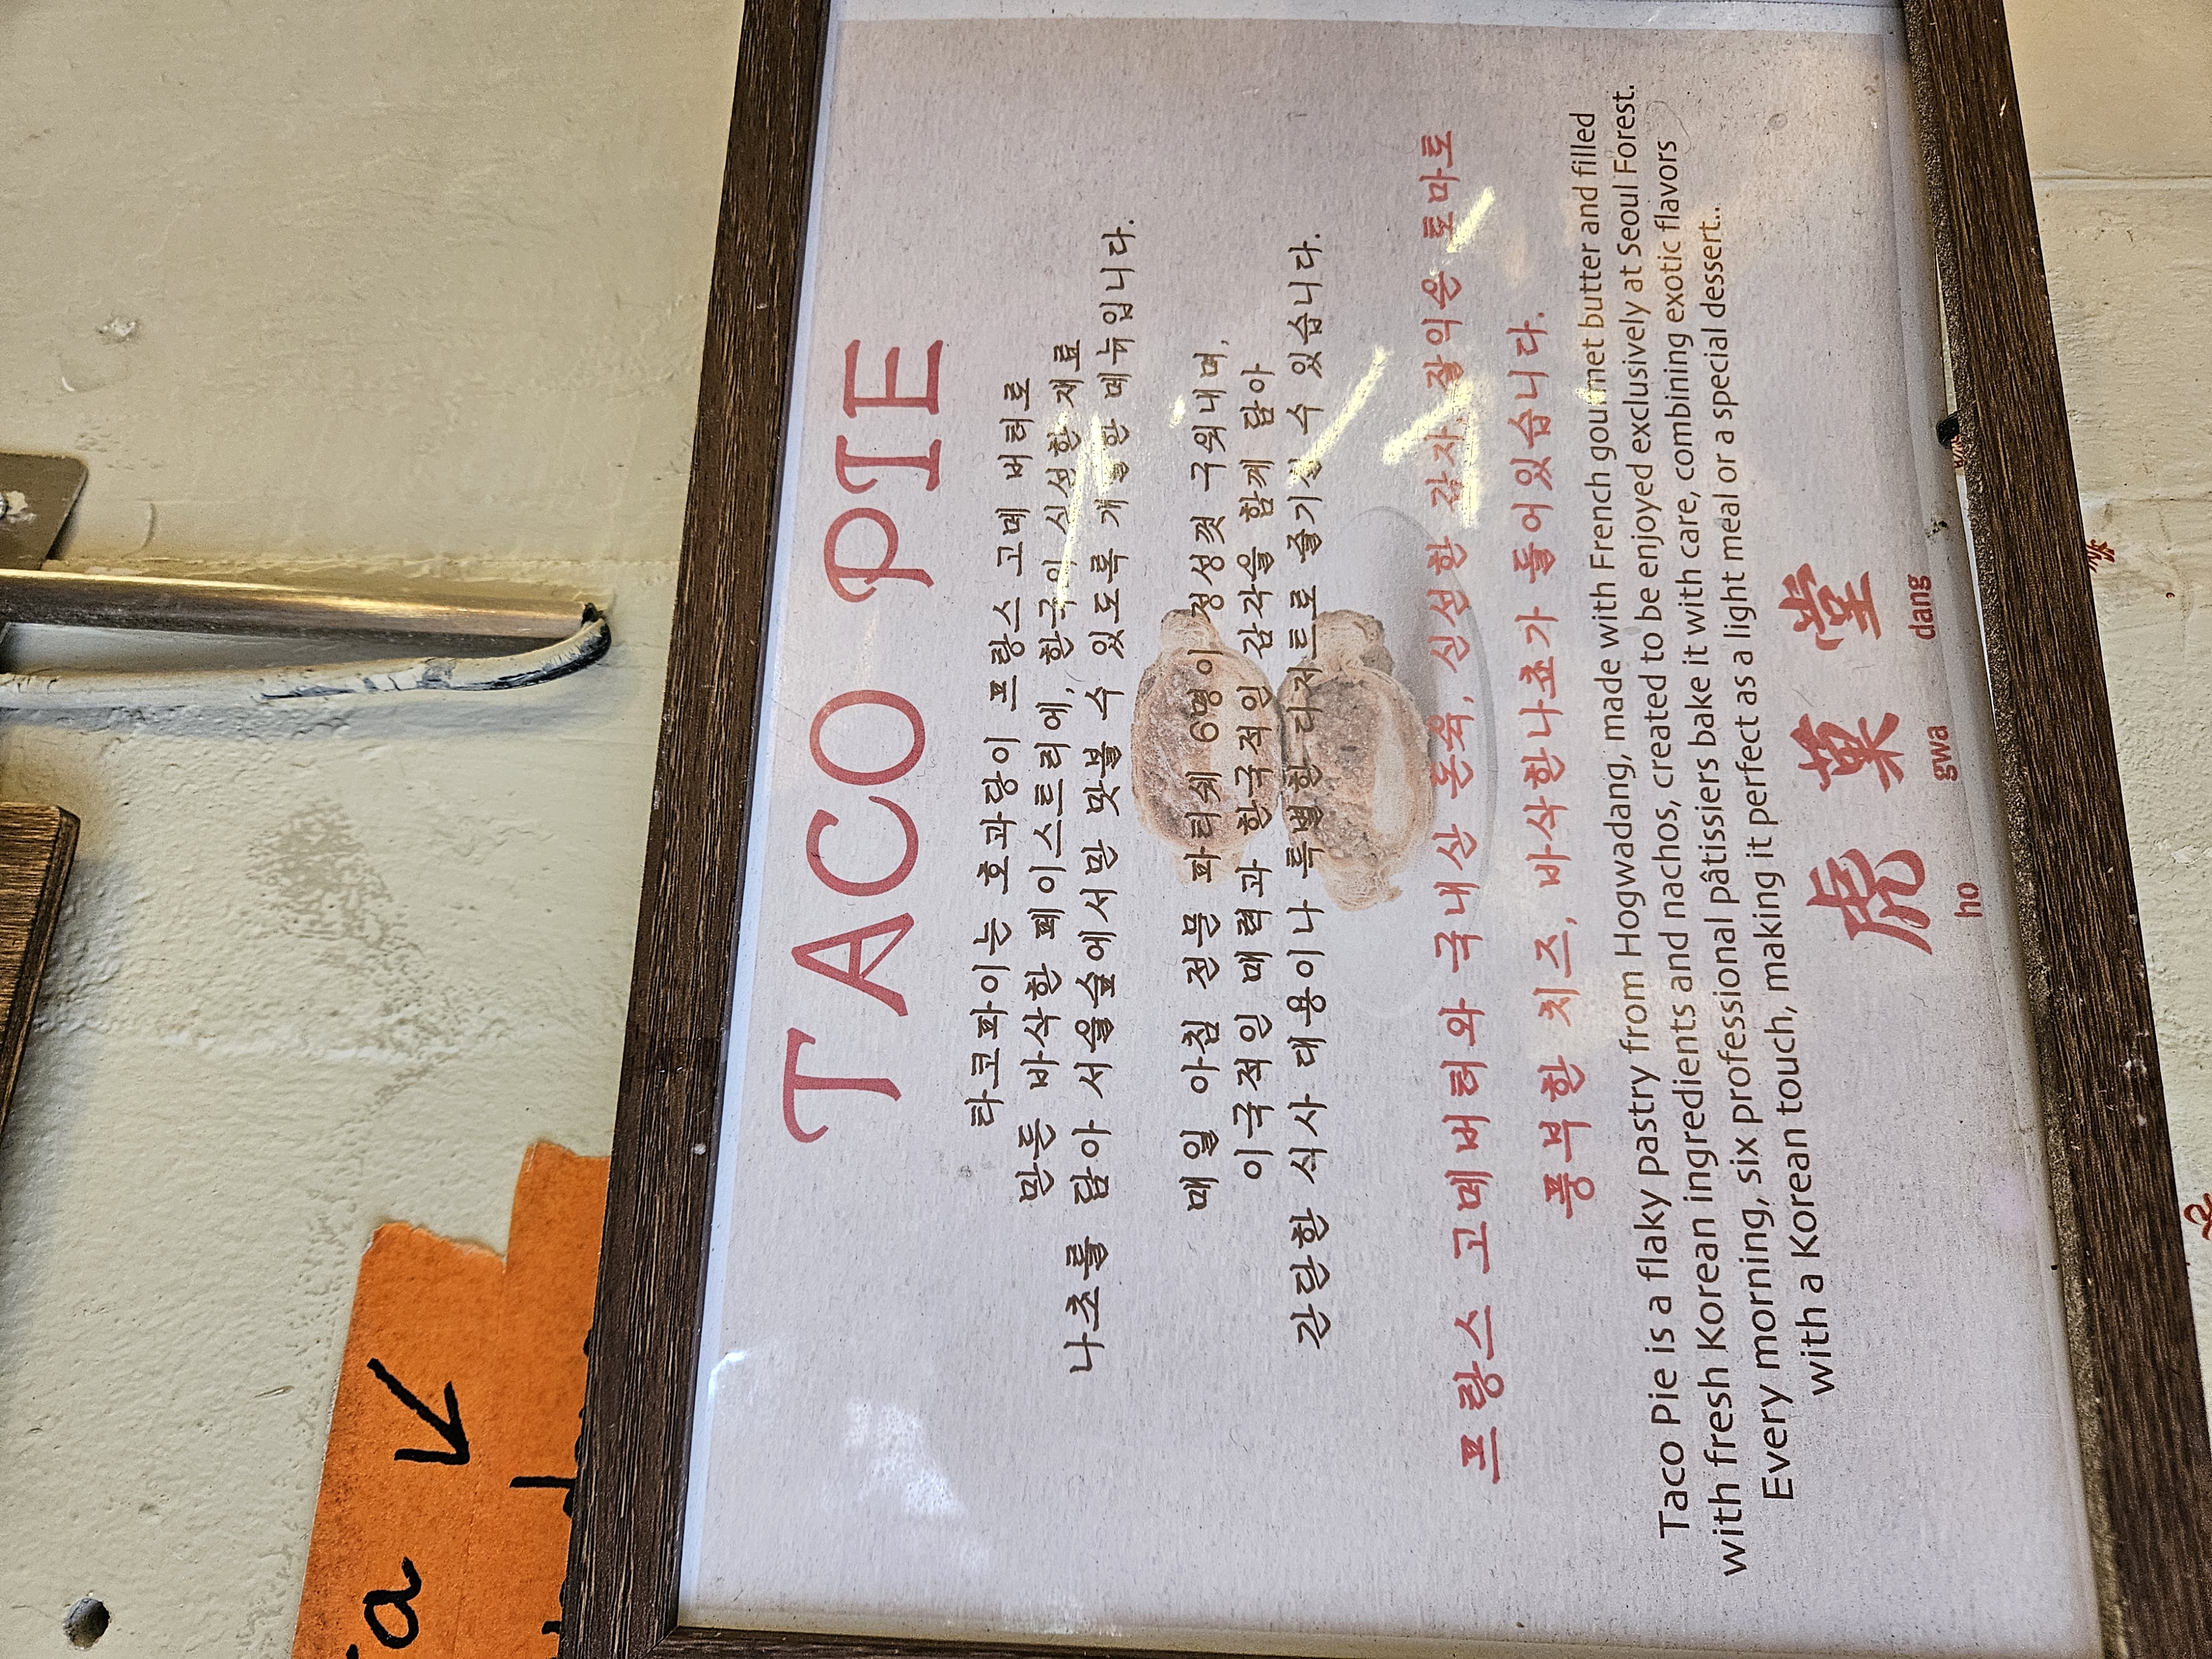 TACO PIE
타코파이는 호과당이 프랑스 고메 버터로
만든 바삭한 페이스트리에, 한국의 신선한 재료
나초를 담아 서울숲에서만 맛볼 수 있도록 개발한 메뉴입니다.
매일 아침 전문 파티쉐 6명이 정성껏 구워내며,
이국적인 매력과 한국적인 감각을 함께 담아
간단한 식사 대용이나 특별한 디저트로 즐기실 수 있습니다.
프랑스 고메버터와 국내산 돈육, 신선한 감자, 잘익은 토마토
풍부한 치즈, 바삭한나쵸가 들어있습니다.
Taco Pie is a flaky pastry from Hogwadang, made with French gourmet butter and filled
with fresh Korean ingredients and nachos, created to be enjoyed exclusively at Seoul Forest.
Every morning, six professional pâtissiers bake it with care, combining exotic flavors
with a Korean touch, making it perfect as a light meal or a special dessert..
虎 菓 堂
ho gwa dang